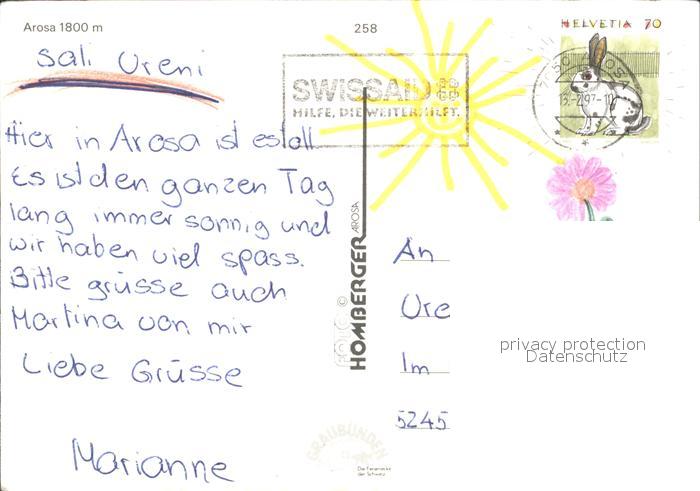 Arosa 1800 m
258
HELVETIA 70
Sali Ureni
SWISSAID
HILFE, DIE WEITERHILFT.
13.-2.97-10
Hier in Arosa ist es toll
Es ist den ganzen Tag
lang immer sonnig und
wir haben viel spass.
Bitte grüsse auch
Martina von mir
Liebe Grüsse
Marianne
FOTO © HOMBERGER AROSA
GRAUBÜNDEN
Die Ferienecke
der Schweiz
An
Ure
Im
5245
privacy protection
Datenschutz